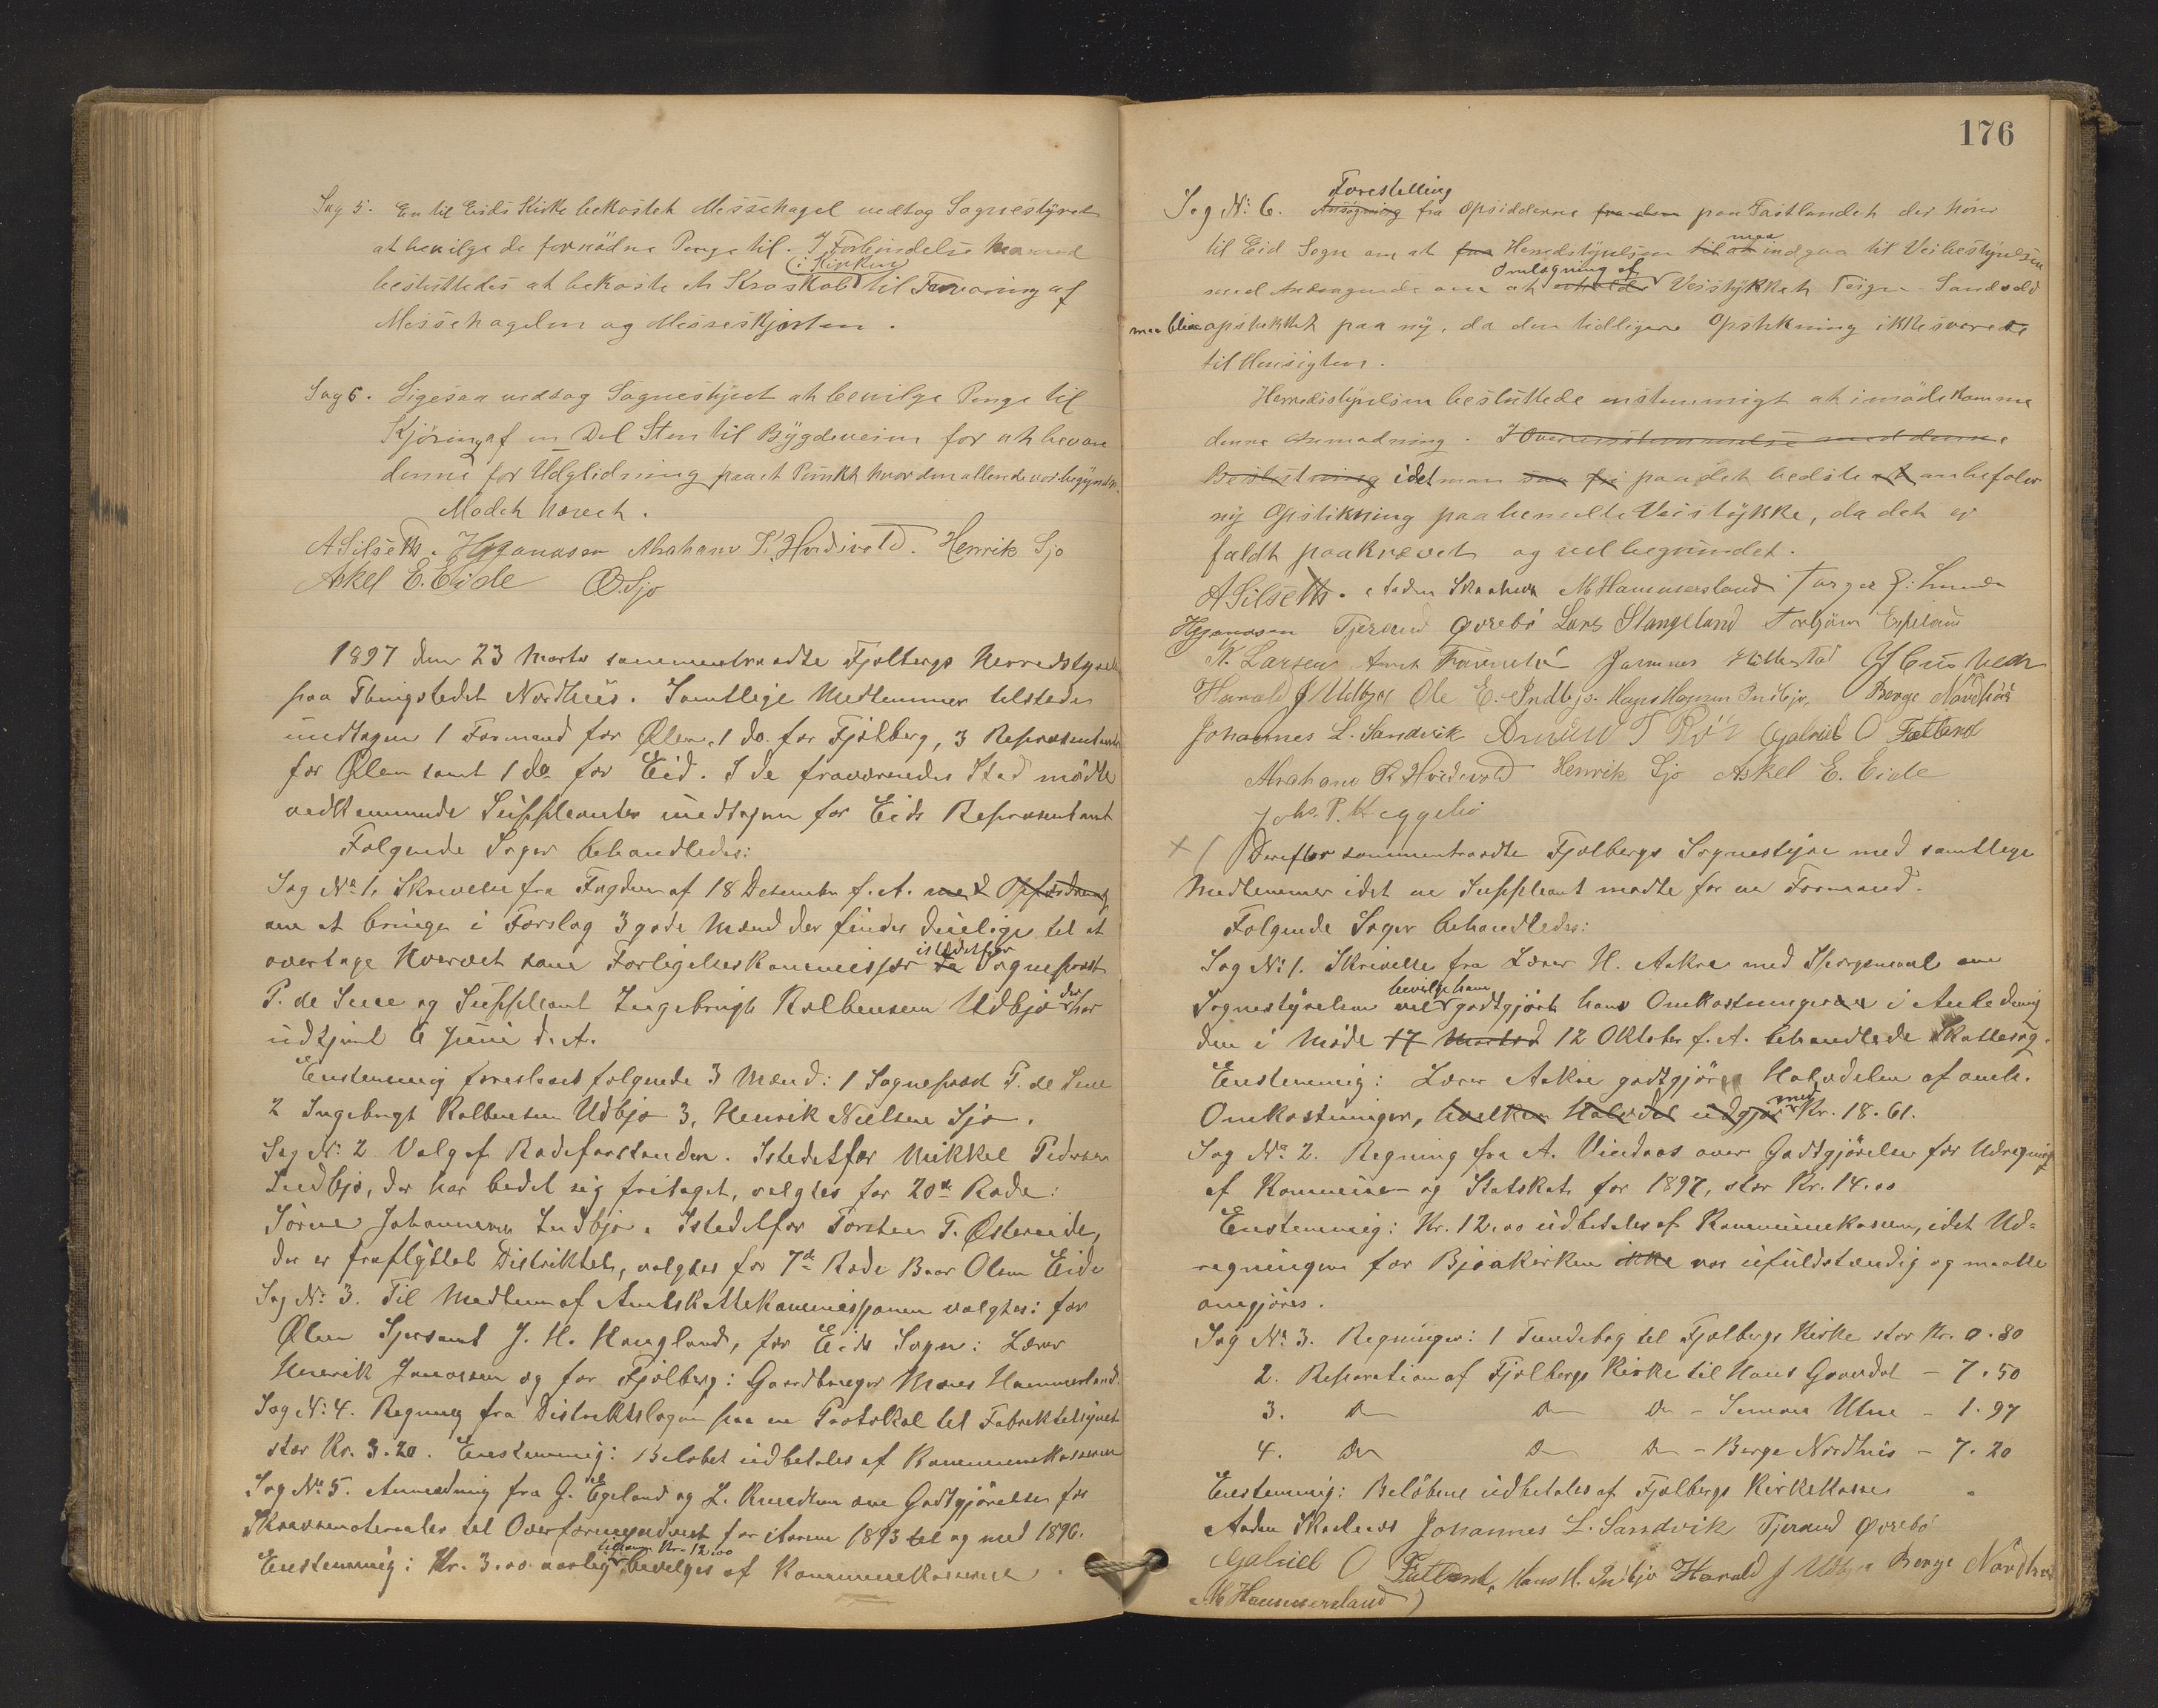 Sag 5. En til Eids Kirke bekostet Messehagel vedtog Sognestyret
at bevilge de fornödne Penge til. I Forbindelse hermed
besluttedes at bekoste et Kroskab i Kirken til Forvaring af
Messehagelen og Messeskjorten.
Sag 6. Ligesaa vedtog Sognestyret at bevilge Penge til
Kjöring af en Del Sten til Bygdeveien for at bevare
denne for Udglidning paa et Punkt hvor den allerede var begyndt.
Mödet hævet.
A Silseth. H Jonassen Abraham K. Hordvold. Henrik Sjo
Askel E. Eide O. Sjo
1897 den 23 Marts sammentraadte Fjelbergs Herredstyrelse
paa Thingstedet Nordhuus. Samtlige Medlemmer tilstede
undtagen 1 Formand for Ølen, 1 do. for Fjelberg, 3 Repræsentanter
for Ølen samt 1 do for Eid. I de fraværendes Sted mödte
vedkommende Suppleanter undtagen for Eids Repræsentant
Følgende Sager behandledes:
Sag No 1. Skrivelse fra Fogden af 18 Desember f. A. med Opfordring
om at bringe i Forslag 3 gode Mænd der findes duelige til at
overtage Hvervet som Forligelseskommissær istedetfor Sogneprest
P. de Seue og Suppleant Ingebrigt Kolbensen Udbjo der har
udtjent 6 Juni d. A.
Enstemmig foreslaaes følgende 3 Mænd: 1 Sogneprest P. de Seue
2 Ingebrigt Kolbensen Udbjo 3, Henrik Nielsen Sjo.
Sag No 2 Valg af Rodeforstander. Istedetfor Mikkel Pedersen
Indbjo, der har bedet sig fritaget, valgtes for 20de Rode:
Sören Johannesen Indbjo. Istedetfor Torsten T. Østereide,
der er fraflyttet Distriktet, valgtes for 7de Rode Baar Olsen Eide
Sag No 3. Til Medlem af Amtsskattekommissionen valgtes: for
Ølen Sjersant J. H. Haugland, for Eids Sogn: Lærer
Henrik Jonassen og for Fjelberg: Gaardbruger Mons Hammersland.
Sag No 4. Regning fra Distriktslægen paa en Protokol til Fabriktilsynet
stor Kr. 3.20. Enstemmig: Beløbet udbetales af Kommunekassen
Sag No 5. Anmodning fra G. Egeland og L. Knudsen om Godtgjörelse for
Skrivematerialer til Overformynderiet for Aarene 1893 til og med 1896.
Enstemmig: Kr. 3.00 aarlig tilsam. Kr. 12.00 bevilges af Kommunekassen.
176
Sag No 6. Ansögning Forestilling fra Opsidderne fra dem paa Fastlandet der hörer
til Eid Sogn om at faa Herredstyrelsen til at maa indgaa til Veibestyrelsen
med Andragende om at Omlægning af Veistykket Teigen - Sandvold
maa blive opstukket paa ny, da den tidligere Opstikning ikke svarede
til Hensigten.
Herredstyrelsen besluttede enstemmigt at imödekomme
denne Anmodning. I Overensstemmelse med denne
Beslutning idet man paa det bedste at anbefaler
ny Opstikning paa bemeldte Veistykke, da det er
fuldt paakrævet og vel begrundet.
A Silseth. Aadne M Hammersland Torger
H Jonassen Tjerand Øvrebö Lars Stangeland Torbjörn Espeland
K. Larsen
Harald J Udbjo Ole E. Indbjo. Hans Magnus Indbjo, Berge Nordhuus
Johannes L. Sandvik Gabriel O Fatland
Abraham K Hordvold Henrik Sjo Askel E. Eide
Johs. P.
+/ Derefter sammentraadte Fjelbergs Sognestyre med samtlige
Medlemmer idet en Suppleant mödte for en Formand.
Følgende Sager behandledes:
Sag No 1. Skrivelse fra Lærer H. Aakre med Spörgsmaal om
Sognestyrelsen vil bevilge ham godtgjört hans Omkostninger i Anledning
den i Möde 17 Marts 12 Oktober f. A. behandlede Skattesag.
Enstemmig: Lærer Aakre godtgjöres Halvdelen af anm.
Omkostninger, hvilken Halvdel udgjör med Kr. 18.61.
Sag No 2. Regning fra A. Vindaas over Godtgjörelse for Udregning
af Kommune- og Statskat for 1897, stor Kr. 14.00
Enstemmig: Kr. 12.00 udbetales af Kommunekassen, idet Ud-
regningen for Bjoakirken ikke var ufuldstændig og maatte
omgjöres.
Sag No 3. Regninger: 1 Tiendebog til Fjelbergs Kirke stor Kr. 0.80
2. Reparation af Fjelbergs Kirke til Hans Gaardal - 7.50
3. Do Do Do - Utne - 1.97
4. Do Do Do - Berge Nordhuus - 7.20
Enstemmig: Belöbene udbetales af Fjelbergs Kirkekasse
Aadne Johannes L. Sandvik Tjerand Øvrebö
Gabriel O Fatland, Hans M. Indbjo Harald J Udbjo Berge Nordhuus
M Hammersland)